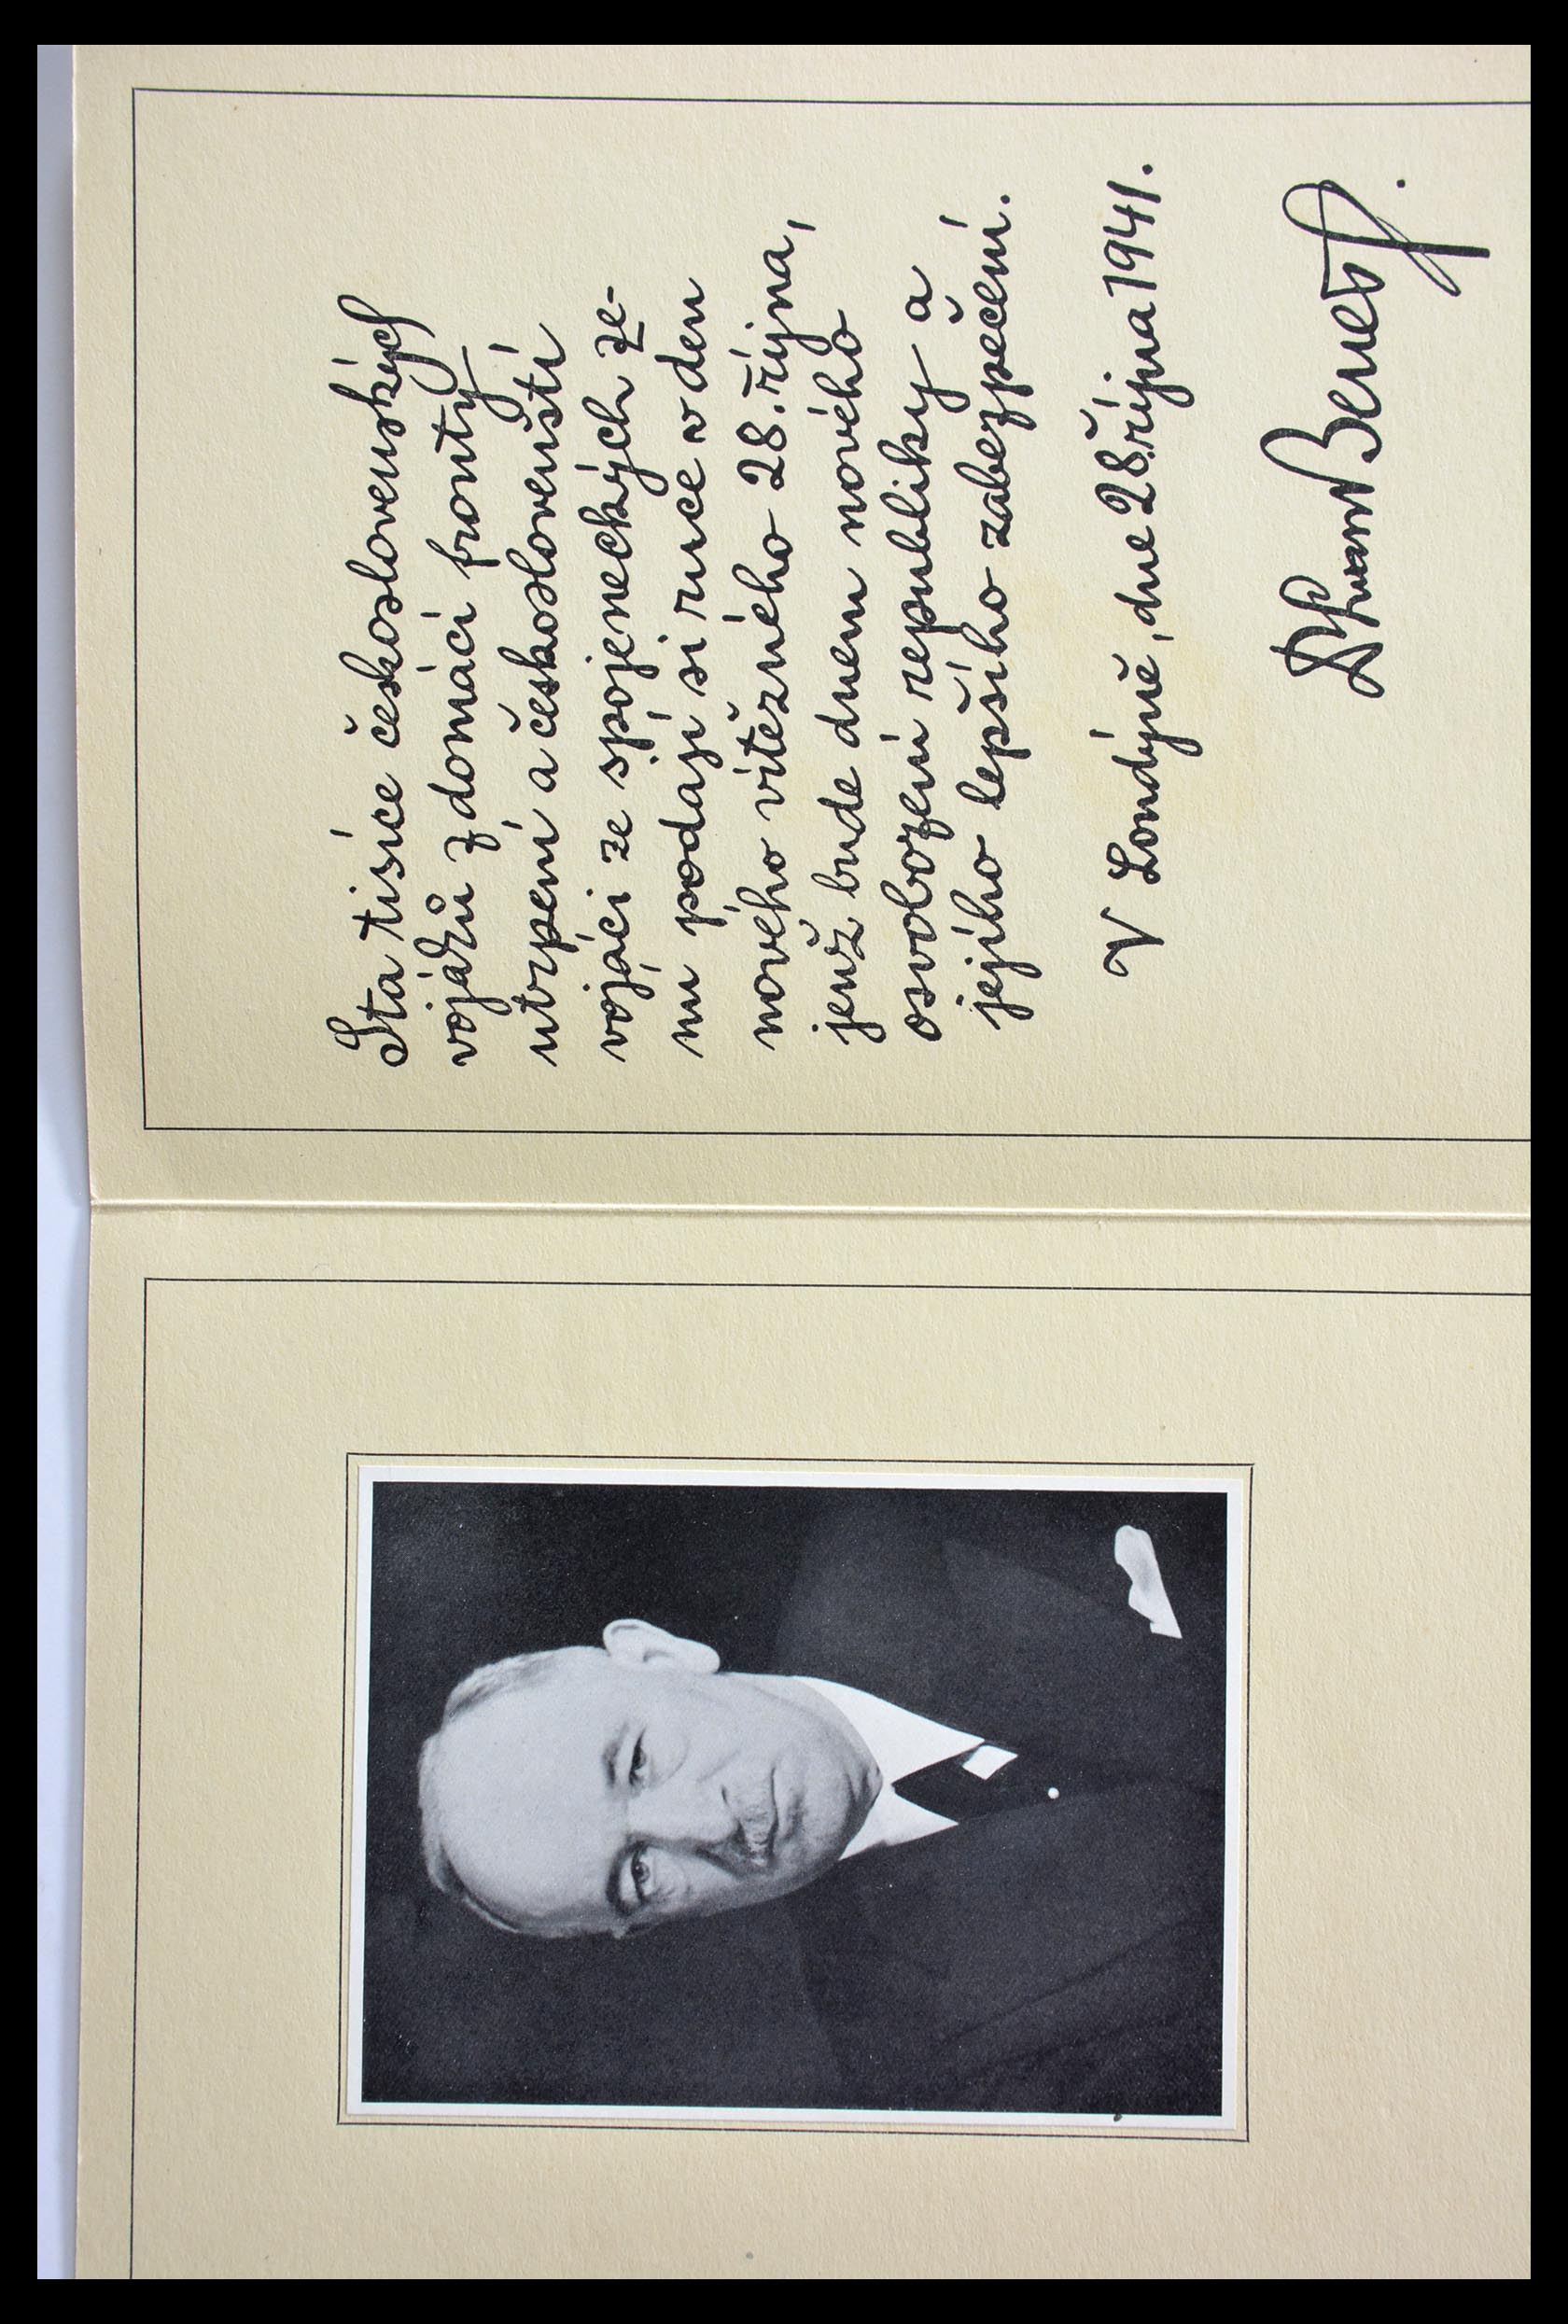 Sta tisíce československých
vojáků z domácí fronty
utrpení a českoslovenští
vojáci ze spojeneckých ze-
mí podají si ruce v den
nového vítězného 28. října,
jenž bude dnem nového
osvobození republiky a
jejího lepšího zabezpečení.
V Londýně, dne 28. října 1941.
Dr Edvard Beneš.